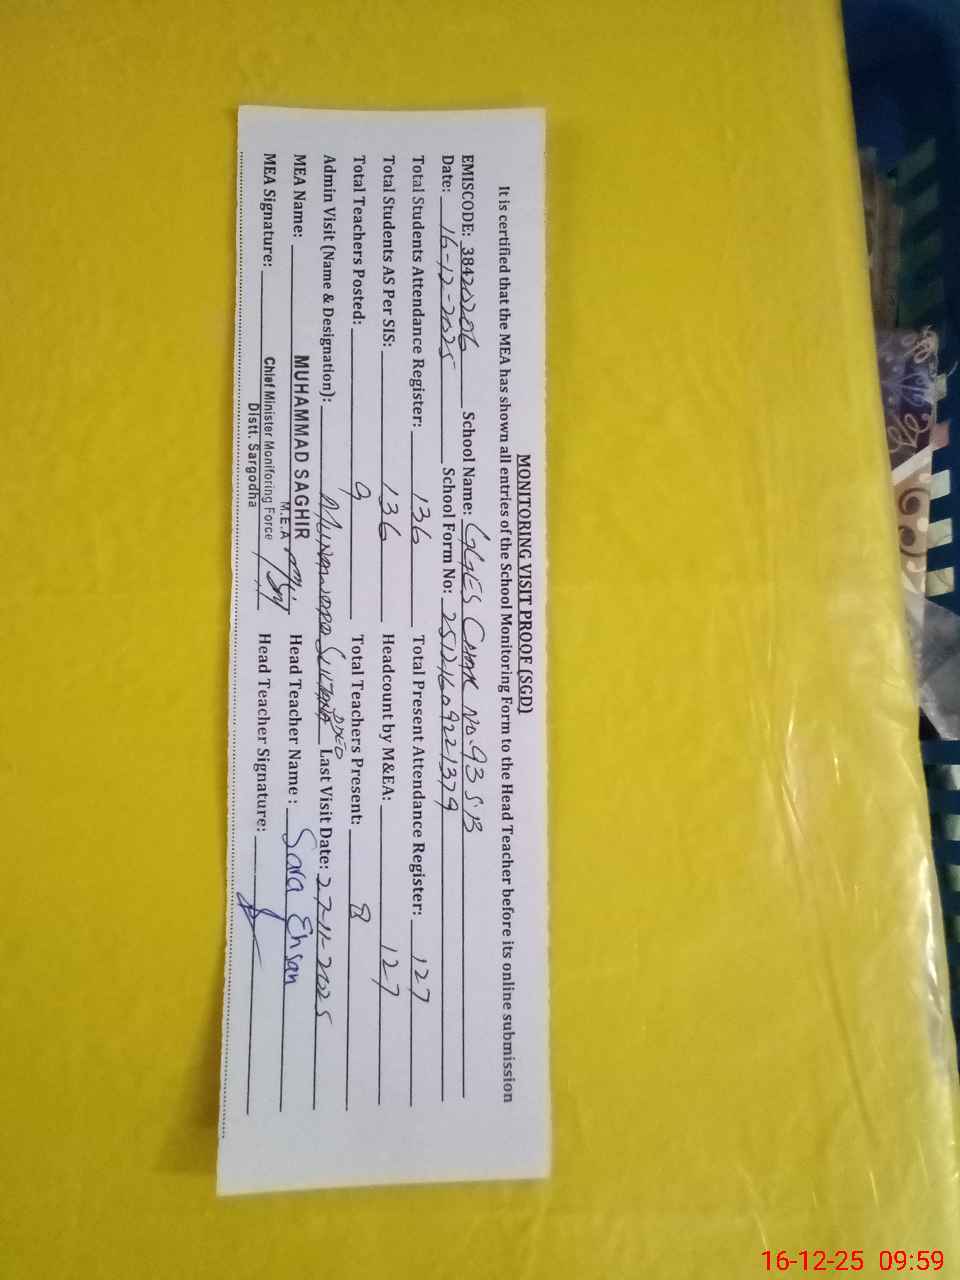 MONITORING VISIT PROOF (SGD)
It is certified that the MEA has shown all entries of the School Monitoring Form to the Head Teacher before its online submission
EMISCODE: 38420206 School Name: GGES CHAK No. 93 S.B
Date: 16-12-2025 School Form No: 25121609221379
Total Students Attendance Register: 136 Total Present Attendance Register: 127
Total Students AS Per SIS: 136 Headcount by M&EA: 127
Total Teachers Posted: 9 Total Teachers Present: 8
Admin Visit (Name & Designation): Sultana Last Visit Date: 27-11-2025
MEA Name: MUHAMMAD SAGHIR Head Teacher Name : Sara Ehsan
M.E.A
MEA Signature: Chief Minister Monitoring Force Head Teacher Signature:
Distt. Sargodha
16-12-25 09:59